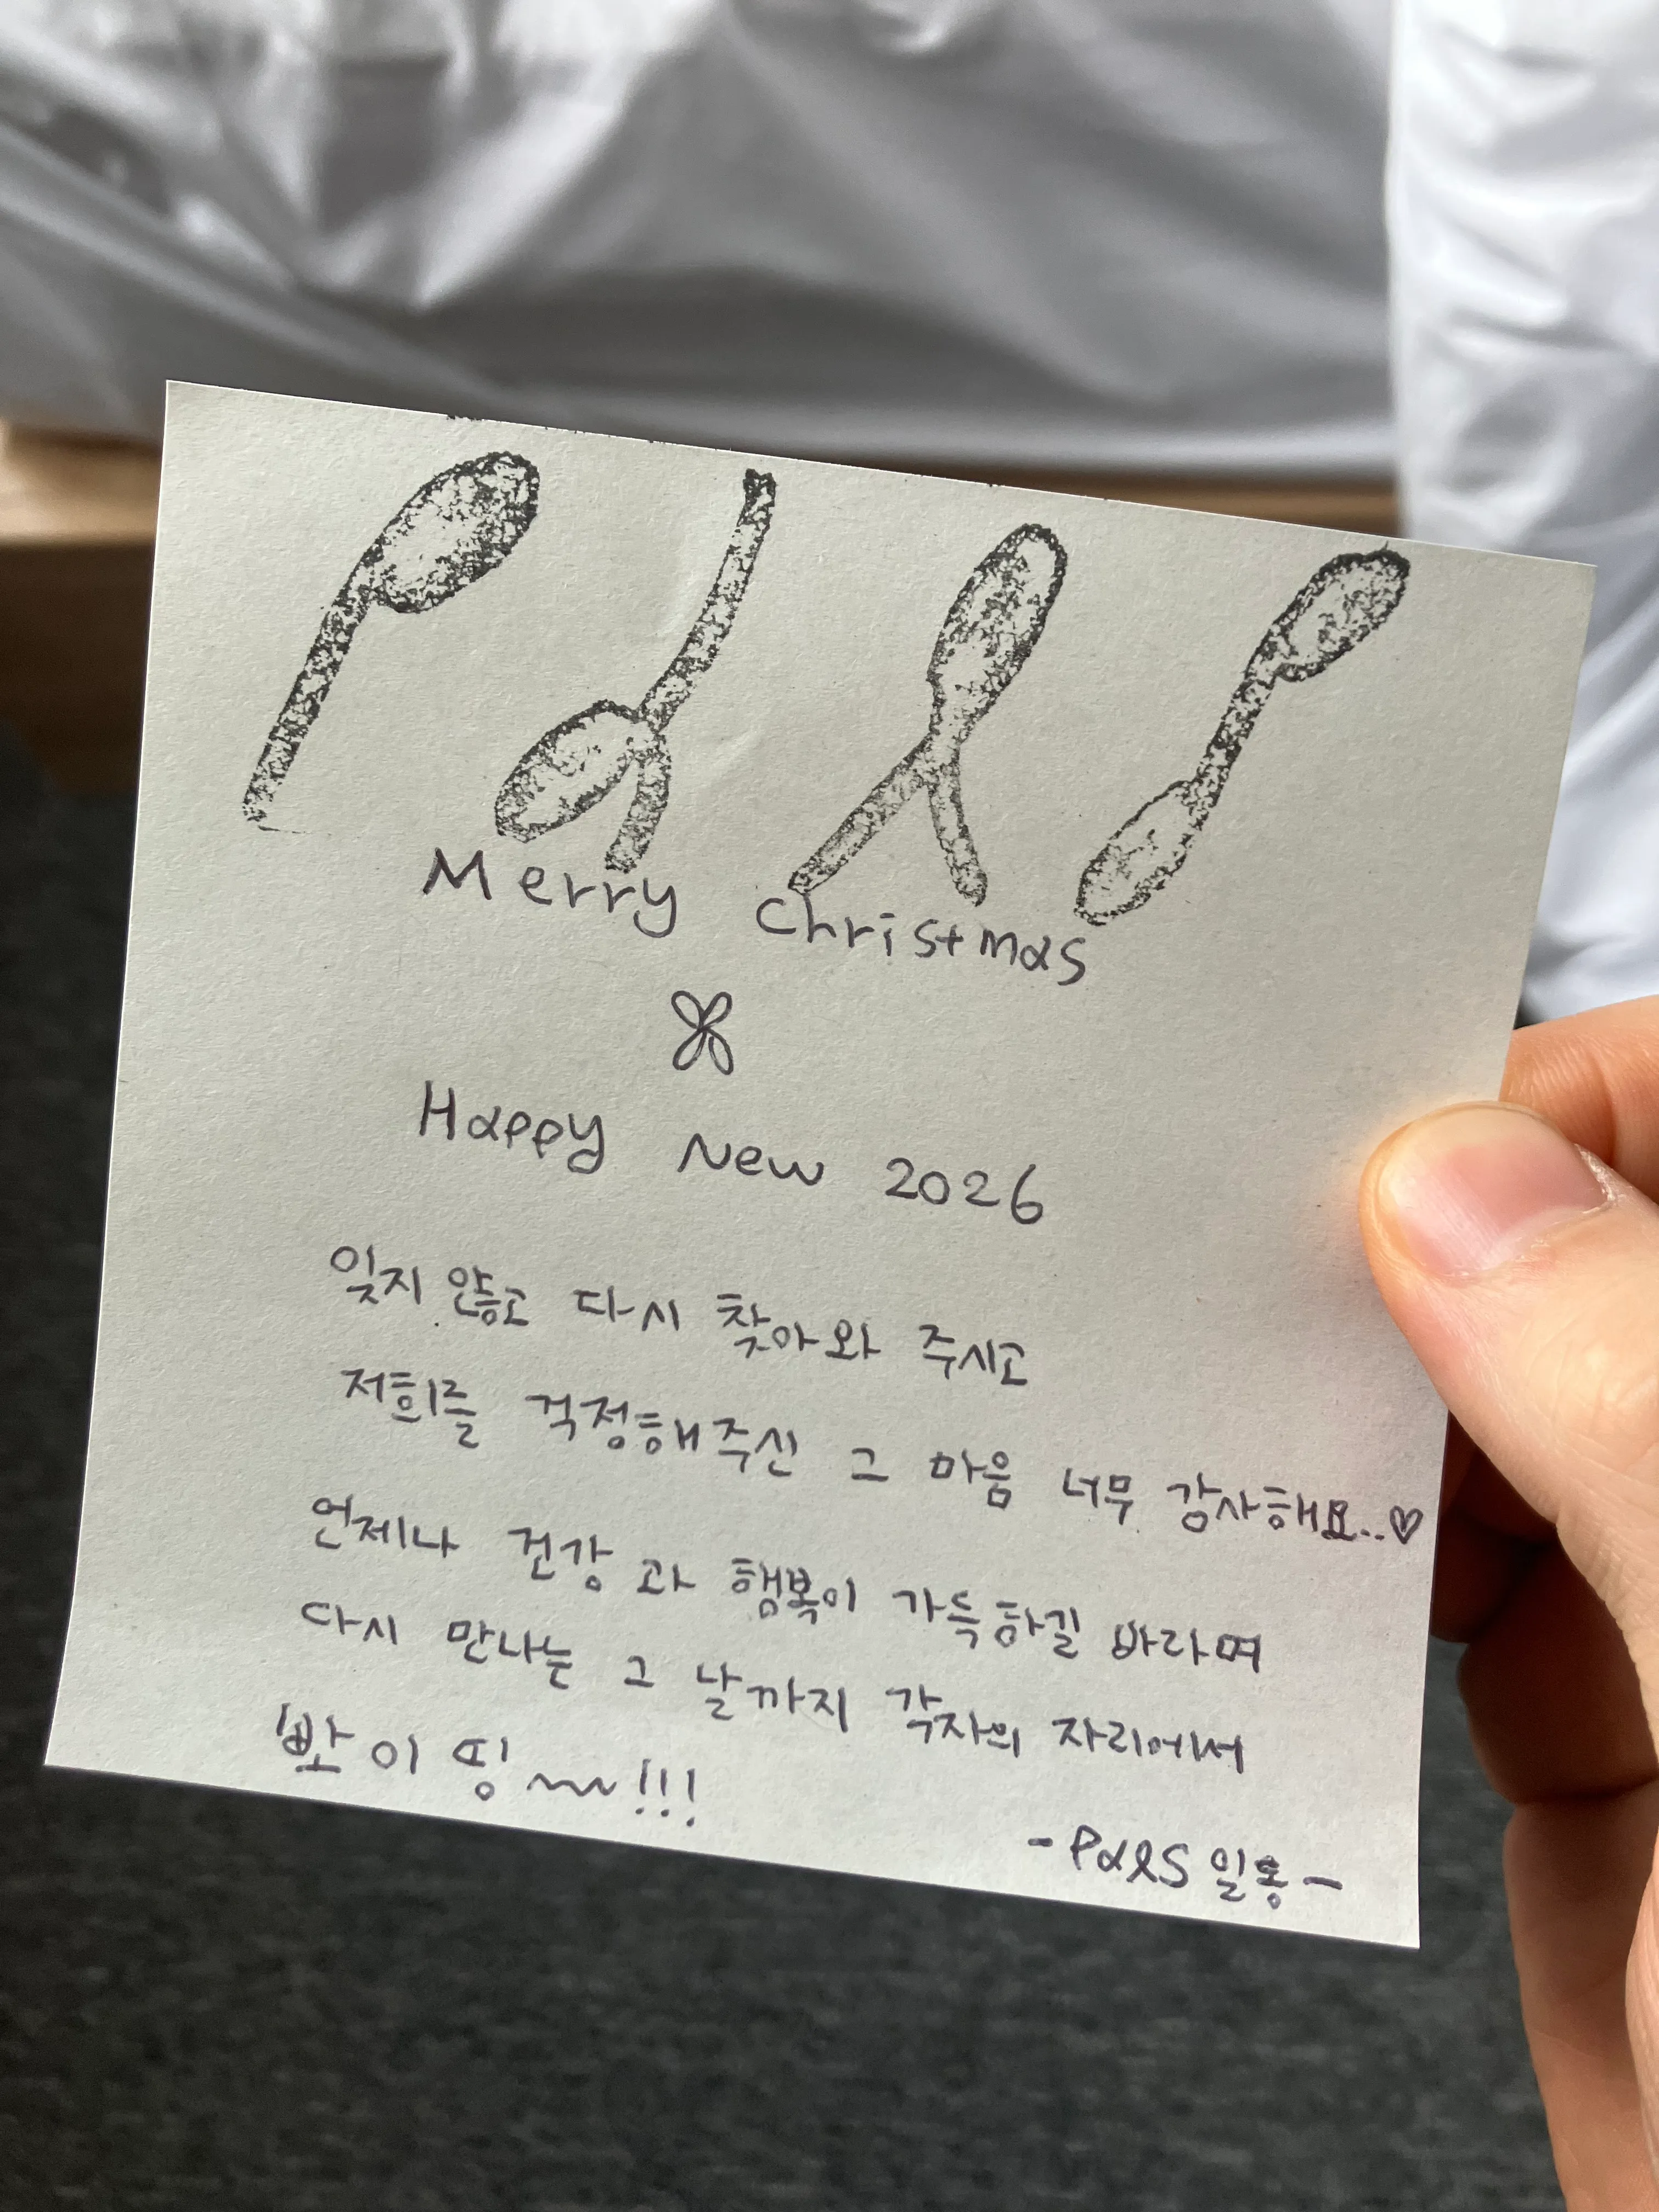 Pals
Merry Christmas
Happy New 2026
잊지 않고 다시 찾아와 주시고
저희를 걱정해주신 그 마음 너무 감사해요..♡
언제나 건강과 행복이 가득하길 바라며
다시 만나는 그 날까지 각자의 자리에서
뽜이띵~~!!!
-Pals 일동-